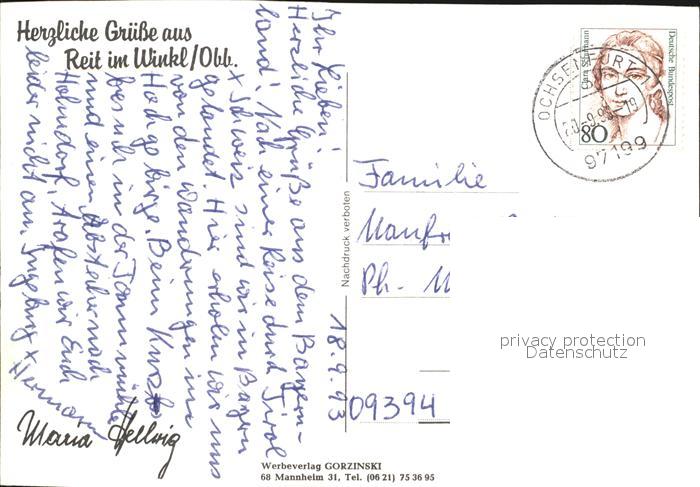 Herzliche Grüße aus
Reit im Winkl/Obb.
18.9.93
Ihr Lieben!
Herzliche Grüße aus dem Bayern-
land! Nach einer Reise durch Tirol
x Schweiz sind wir in Bayern
gelandet. Hier erholen wir uns
von den Wanderungen im
Hochgebirge. Beim Kurz-
besuch in der Tannmühle
und einem Abstecher nach
Hohndorf, trafen wir Euch
leider nicht an. Ingeburg x Hermann
Maria Hellwig
Nachdruck verboten
Deutsche Bundespost
Clara Schumann
80
OCHSENFURT
20.-9.93-19
97199
Familie
Manfr
Ph. M
09394
privacy protection
Datenschutz
Werbeverlag GORZINSKI
68 Mannheim 31, Tel. (06 21) 75 36 95